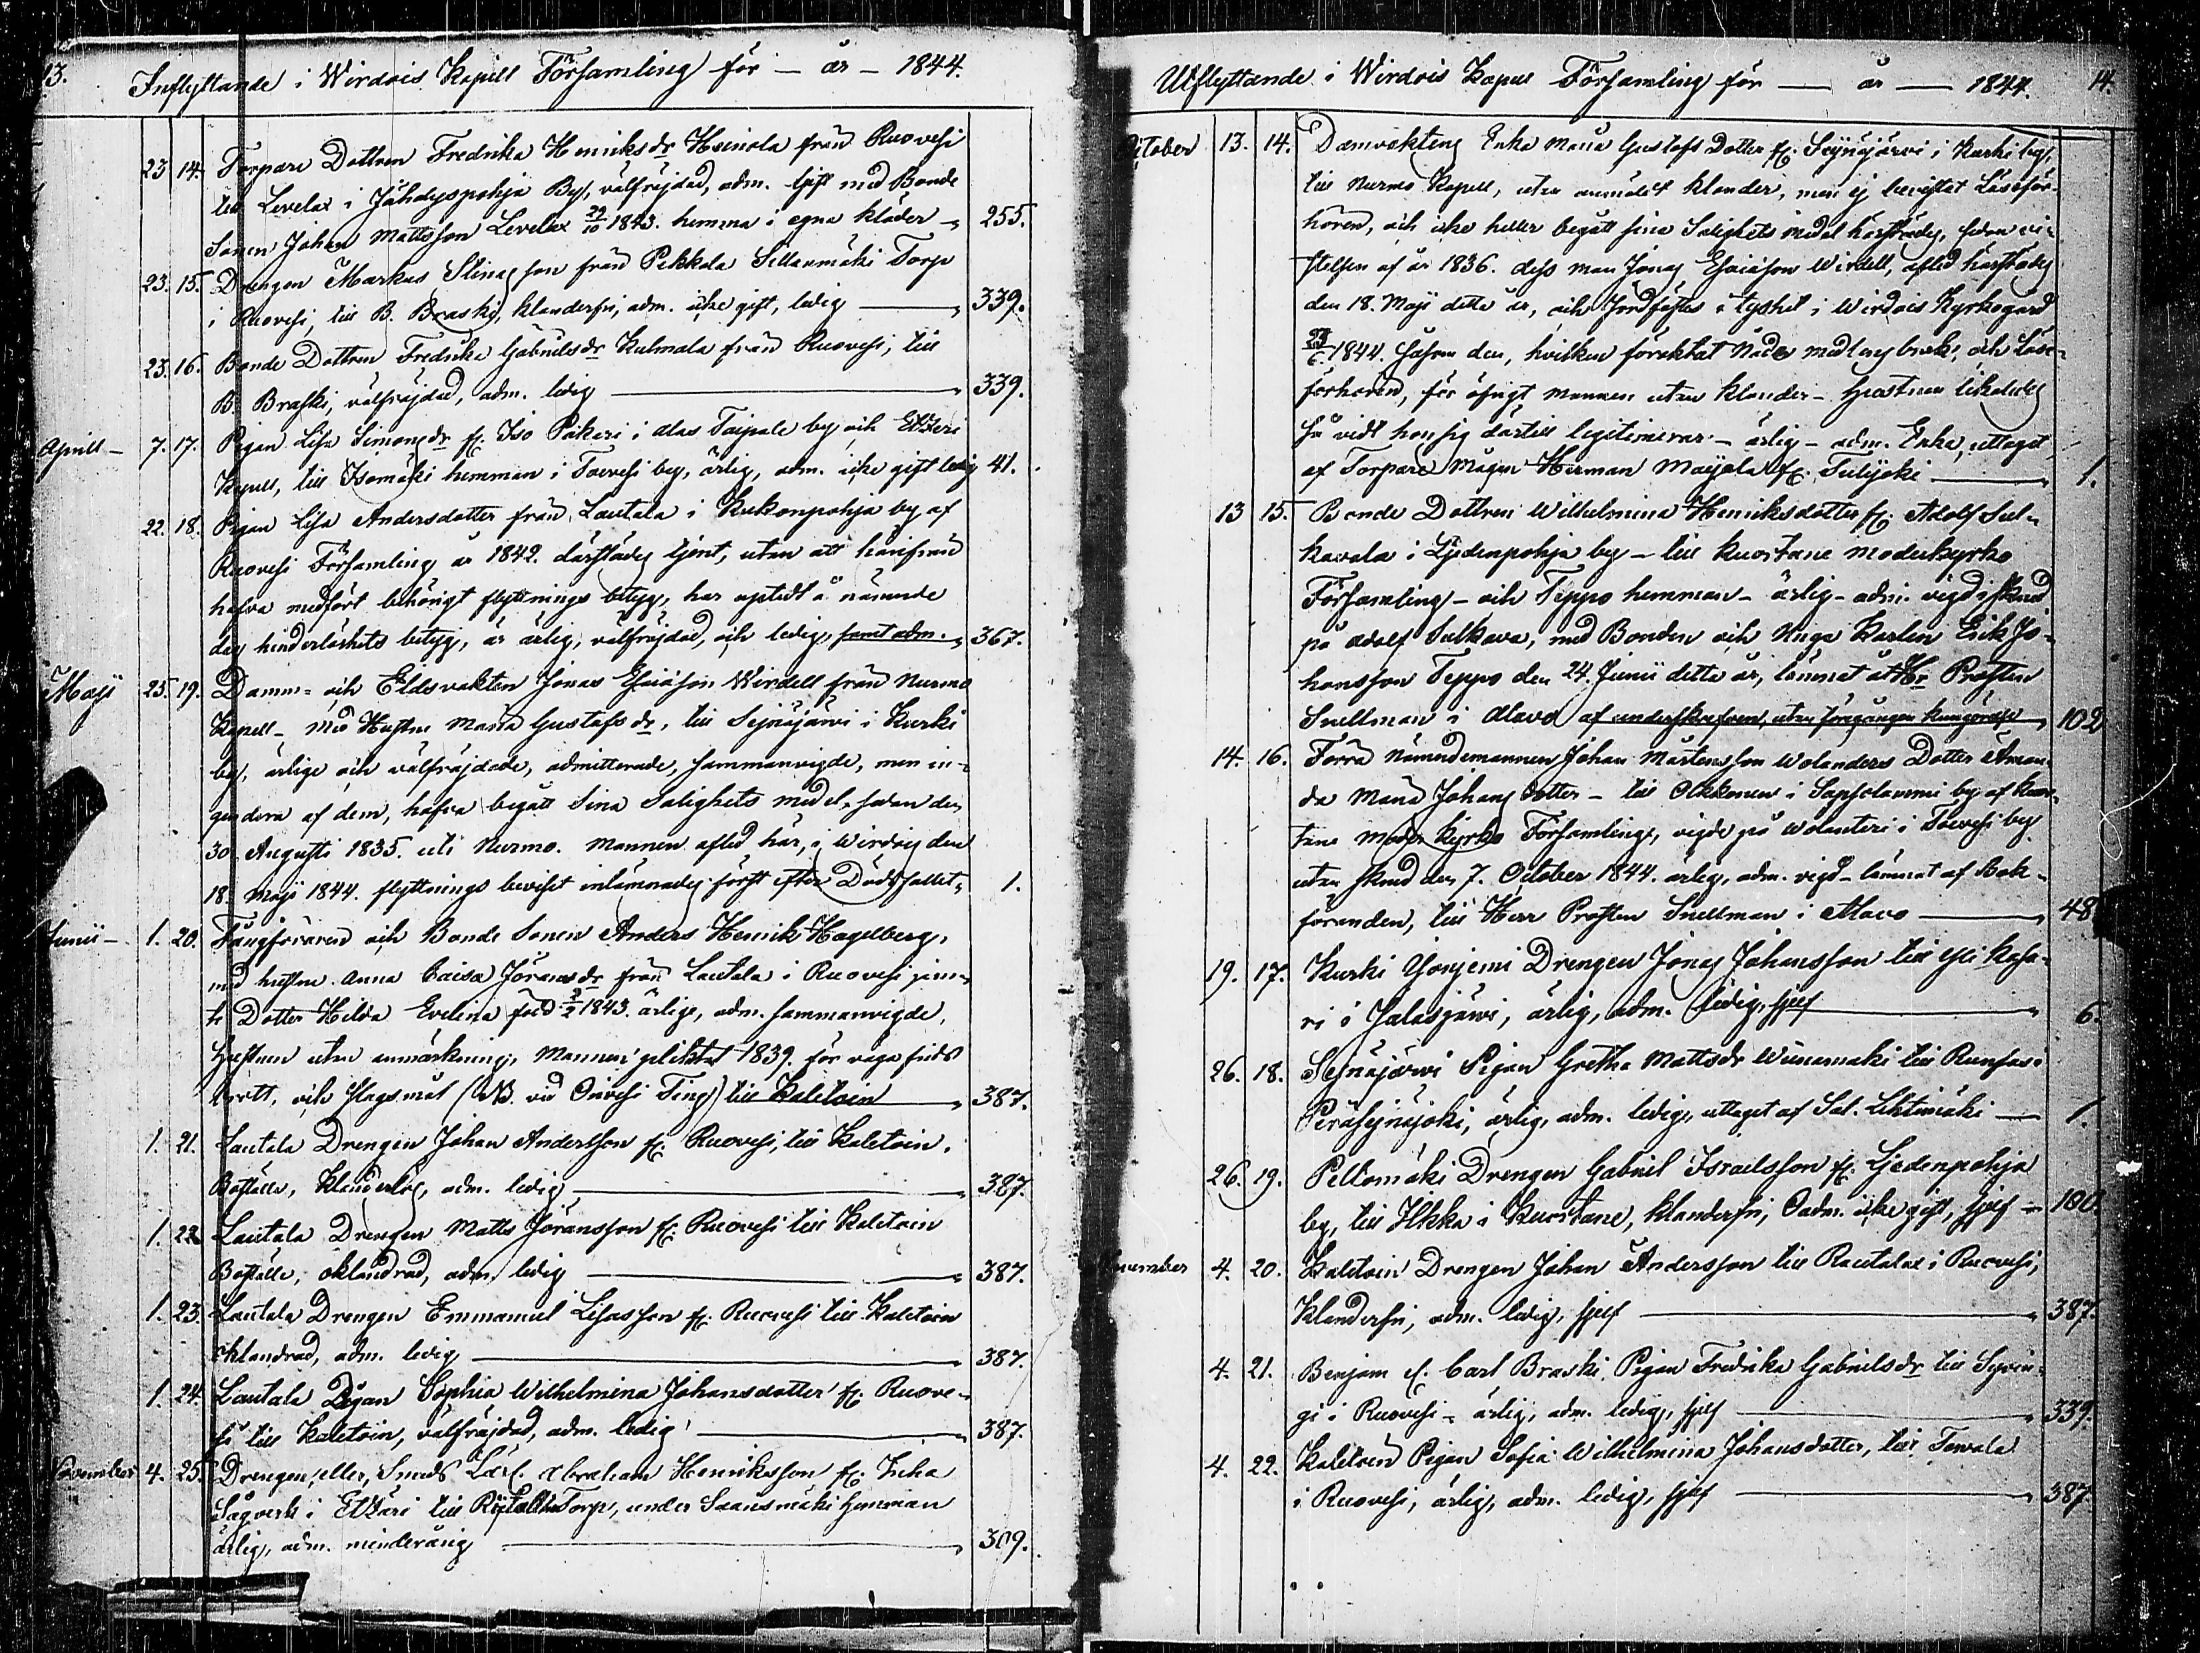 13.
Inflyttande i Wirdois Kapell Församling för – år – 1844.
23 14. Torpare Dottren Fredrika Henriksdr Heinola från Ruovesi
till Levelax i Jähdyspohja By, välfräjdad, adm. Gift med Bonde
Sonen Johan Mattsson Levelax 29/10 1843. hemma i egna kläder 255.
23. 15. Drengen Markus Stinasson från Pekkala Sillanmäki Torp
i Ruovesi, till B. Braski, klanderfri, adm. icke gift, ledig 339.
23. 16. Bonde Dottren Fredrika Gabrielsdr Kulmala från Ruovesi, till
B. Braski, välfräjdad, adm. ledig 339.
Aprill – 7. 17. Pigan Lisa Simonsdr fr. Iso Pakari i Alas Taipale by och Etzeri
Kapell, till Isomäki hemman i Toevesi by, ärlig, adm. icke gift ledig 41.
22. 18. Pigan Lisa Andersdotter från Lautala i Kukonpohja by af
Ruovesi Församling år 1842. därstädes tjent, utan att härifrån
hafva medfört behörigt flyttnings betyg, har upstedt å nämnde
dag hinderlöshets betyg, är ärlig, välfräjdad, och ledig, samt adm. 367.
Maji 25. 19. Damm- och Eldsvakten Jonas Esaiæson Wirdell från Nurmo
Kapell – med Hustru Maria Gustafsdr, till Sejnäjärvi i Kurki
by, ärlige och välfräjdade, admitterade, sammanvigde, men in-
gendera af dem, hafva begått Sina Salighets medel, sedan den
30. Augusti 1835. uti Nurmo. Mannen afled här, i Wirdois den
18. Maji 1844. flyttnings beviset inlämnades först efter Dödsfallet 1.
Junii – 1. 20. Fångföraren och Bonde Sonen Anders Henrik Hagelberg,
med hustru Anna Caisa Jöransdr från Lautala i Ruovesi jem-
te Dotter Hilda Evelina föd 3/2 1843. ärlige, adm. sammanvigde,
Hustrun utan anmärkning, Mannen pliktat 1839. för våga frids
brott, och slagsmål (NB. vid Ting) till Kaletoin 387.
1. 21. Lautala Drengen Johan Andersson fr. Ruovesi, till Kaletoin
Boställe, Klanderlös, adm. ledig 387.
1. 22 Lautala Drengen Matts Jöransson fr. Ruovesi till Kaletoin
Boställe, oklandrad, adm. ledig 387.
1. 23. Lautala Drengen Emmanuel Lisasson fr. Ruovesi till Kaletoin
oklandrad, adm. ledig 387.
1. 24. Lautala Pigan Sophia Wilhelmina Johansdotter fr. Ruove-
si till Kaletoin, välfräjdad, adm. ledig 387.
November 4. 25. Drengen, eller, Smeds Lärl. Abraham Henriksson fr. Inha
Sågverk i Etzäri till Torp, under Saansmäki hemman
ärlig, adm. minderårig 309.
Utflyttande i Wirdois Kapell Församling för – år – 1844. 14.
October 13. 14. Damvakting Enka Maria Gustafs Dotter fr. Sejnäjärvi i Kurki by,
till Nurmo Kapell, utan anmäldt klander, men ej bevistat Läseför-
hören, och icke heller begått sina Salighets medel härstädes, sedan vi-
stelsen af år 1836. dess man Jonas Esaiæson Wirdell, afled härstädes
den 18. Maji detta år, och Jordfästes i tysthet i Wirdois Kyrkogård
1844. såsom den, hvilken föraktat Nåde medlens bruk, och Läse-
förhören, för öfrigt mannen utan klander – Hustrun likaledes
så vidt hon sig därtill legitimerar – ärlig – adm. Enka, uttaget
af Torpare Mågen Herman Mayala fr. Tulijoki 1.
13 15. Bonde Dottren Wilhelmina Henriksdotter fr. Adolf Sul-
kavala i Ljedenpohja by – till Kuortane Moderkyrko
Församling – och Teppo hemman – ärlig – adm. vigd i
på Adolf Sulkava, med Bonden och Unga Karlen Erik Jo-
hansson Teppo den 24. Junii detta år, lämnat åt Hr Prosten
Snellman i Alavo af underskrefven, utan föregången kungörelse 102
14. 16. Förra Nämndemannen Johan Mårtensson Wolanders Dotter Aman-
da Maria Johans dotter – till Olkkonen i by af Kuor-
tane Moder Kyrko Församling, vigde på Wolanteri i Toevesi by
utan den 7. October 1844. ärlig, adm. vigd – lämnat af Bok-
föranden, till Herr Prosten Snellman i Alavo 48
19. 17. Kurki Drengen Jonas Johansson till Yli Kasa-
ri i Jalasjärvi, ärlig, adm. ledig, sjelf 6.
26. 18. Sejnäjärvi Pigan Gretha Mattsdr till
Peräsejnäjoki, ärlig, adm. ledig, uttaget af Sal. Lehtimäki 1.
26. 19. Peltomäki Drengen Gabriel Israelsson fr. Ljedenpohja
by, till Ilkka i Kuortane, klanderfri, Oadm. icke gift, sjelf 180
November 4. 20. Kaletoin Drengen Johan Andersson till Rautalax i Ruovesi,
Klanderfri, adm. ledig, sjelf 387.
4. 21. Benjam fr. Carl Braski Pigan Fredrika Gabrielsdr till Syvin-
gi i Ruovesi – ärlig, adm. ledig, sjelf 339.
4. 22. Kaletoin Pigan Sofia Wilhelmina Johansdotter, till Towala
i Ruovesi, ärlig, adm. ledig, sjelf 387.